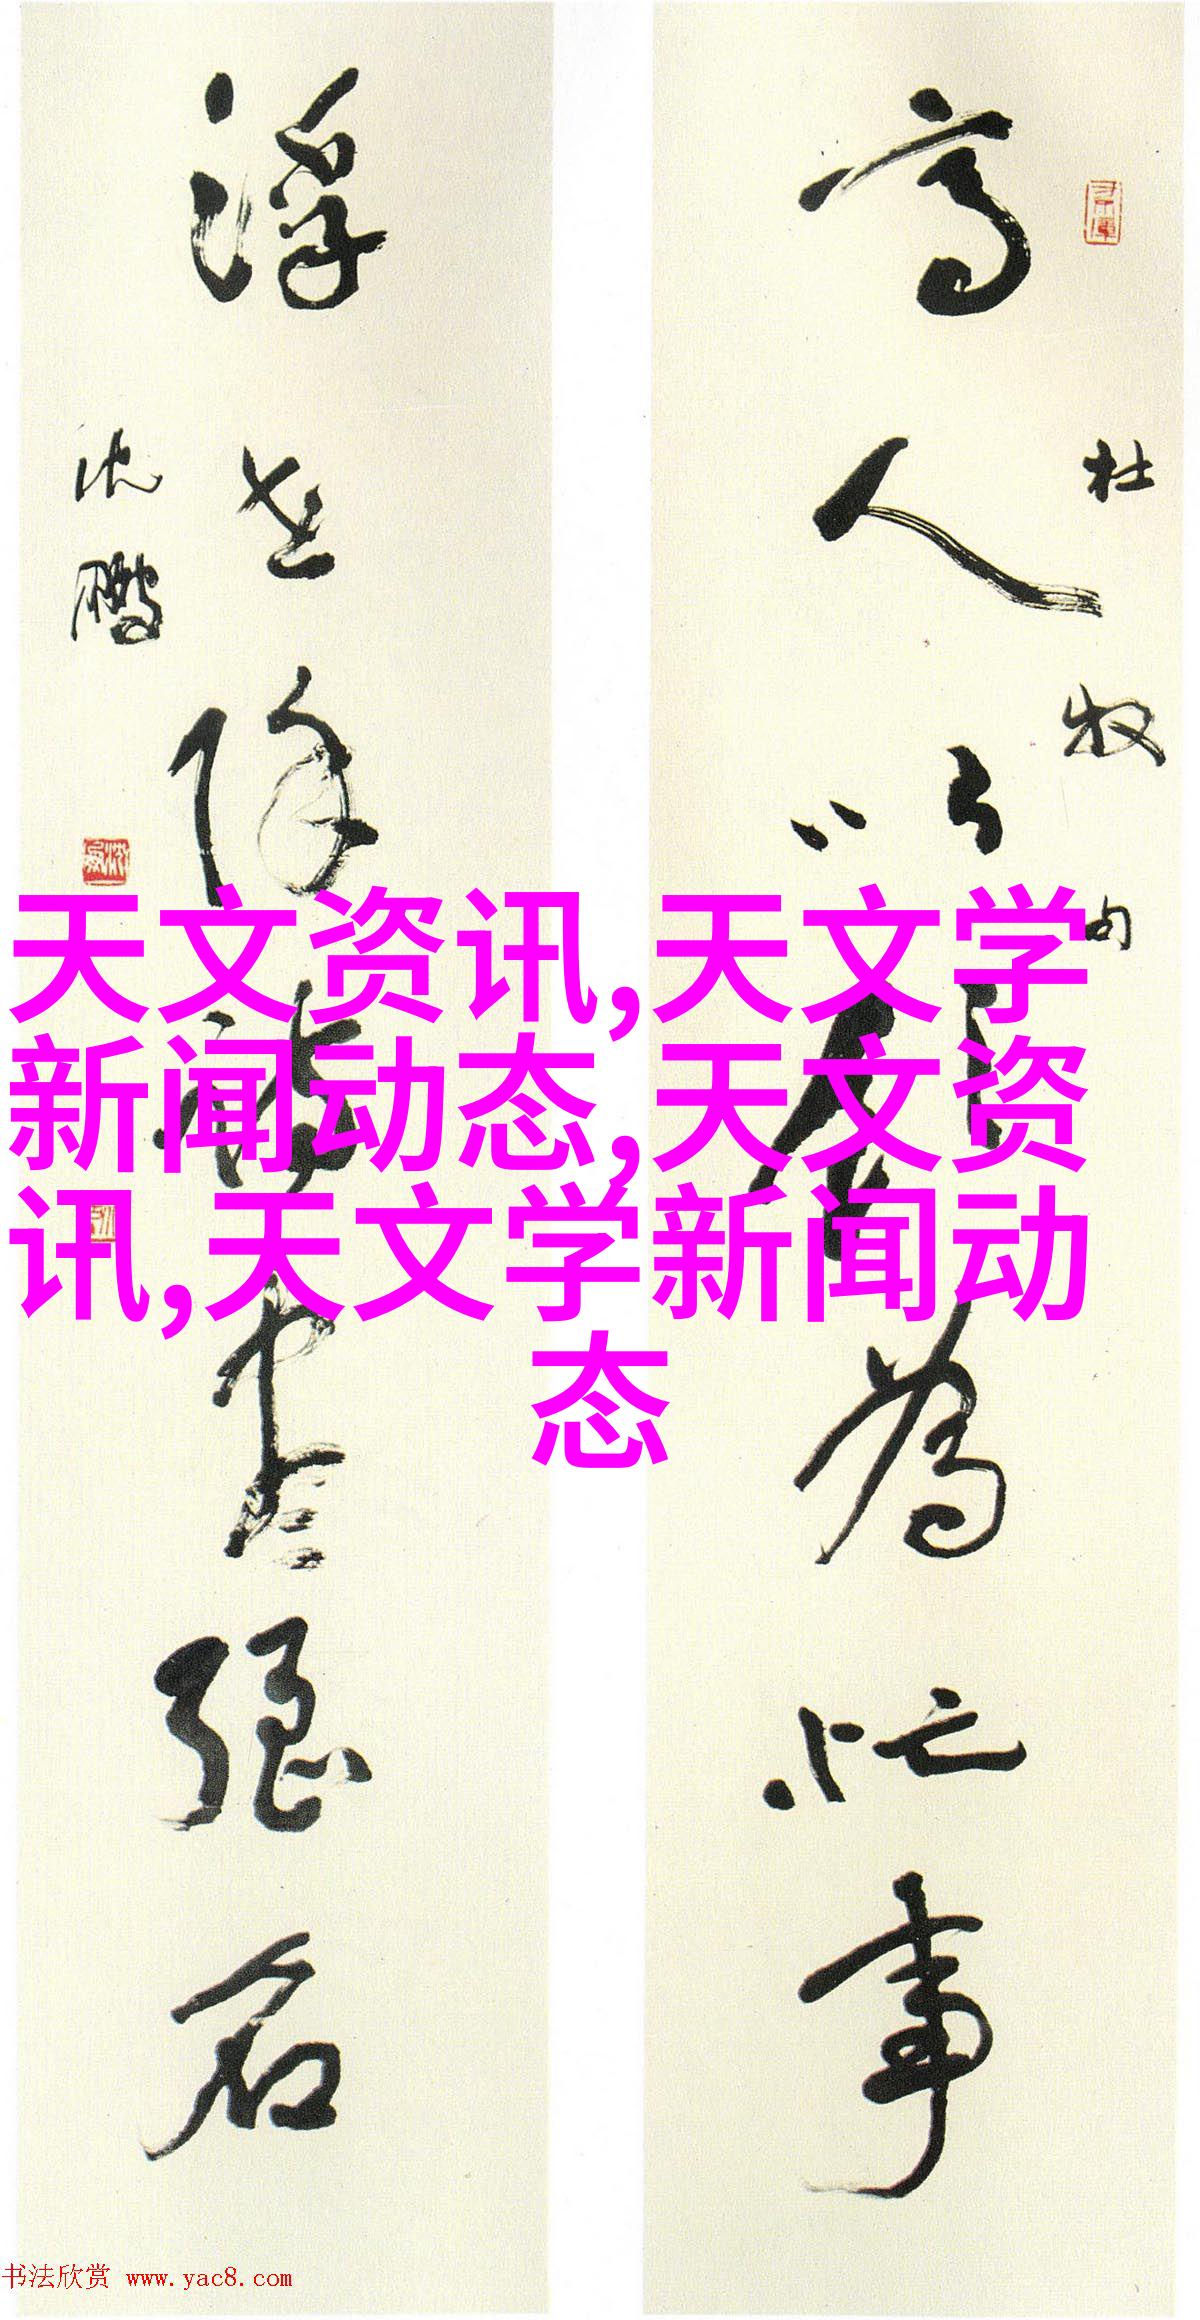 高人以飲為忙事
杜牧句
浮世除詩盡強名
沈鹏
天文资讯,天文学
新闻动态,天文资
讯,天文学新闻动
态
书法欣赏 www.yac8.com